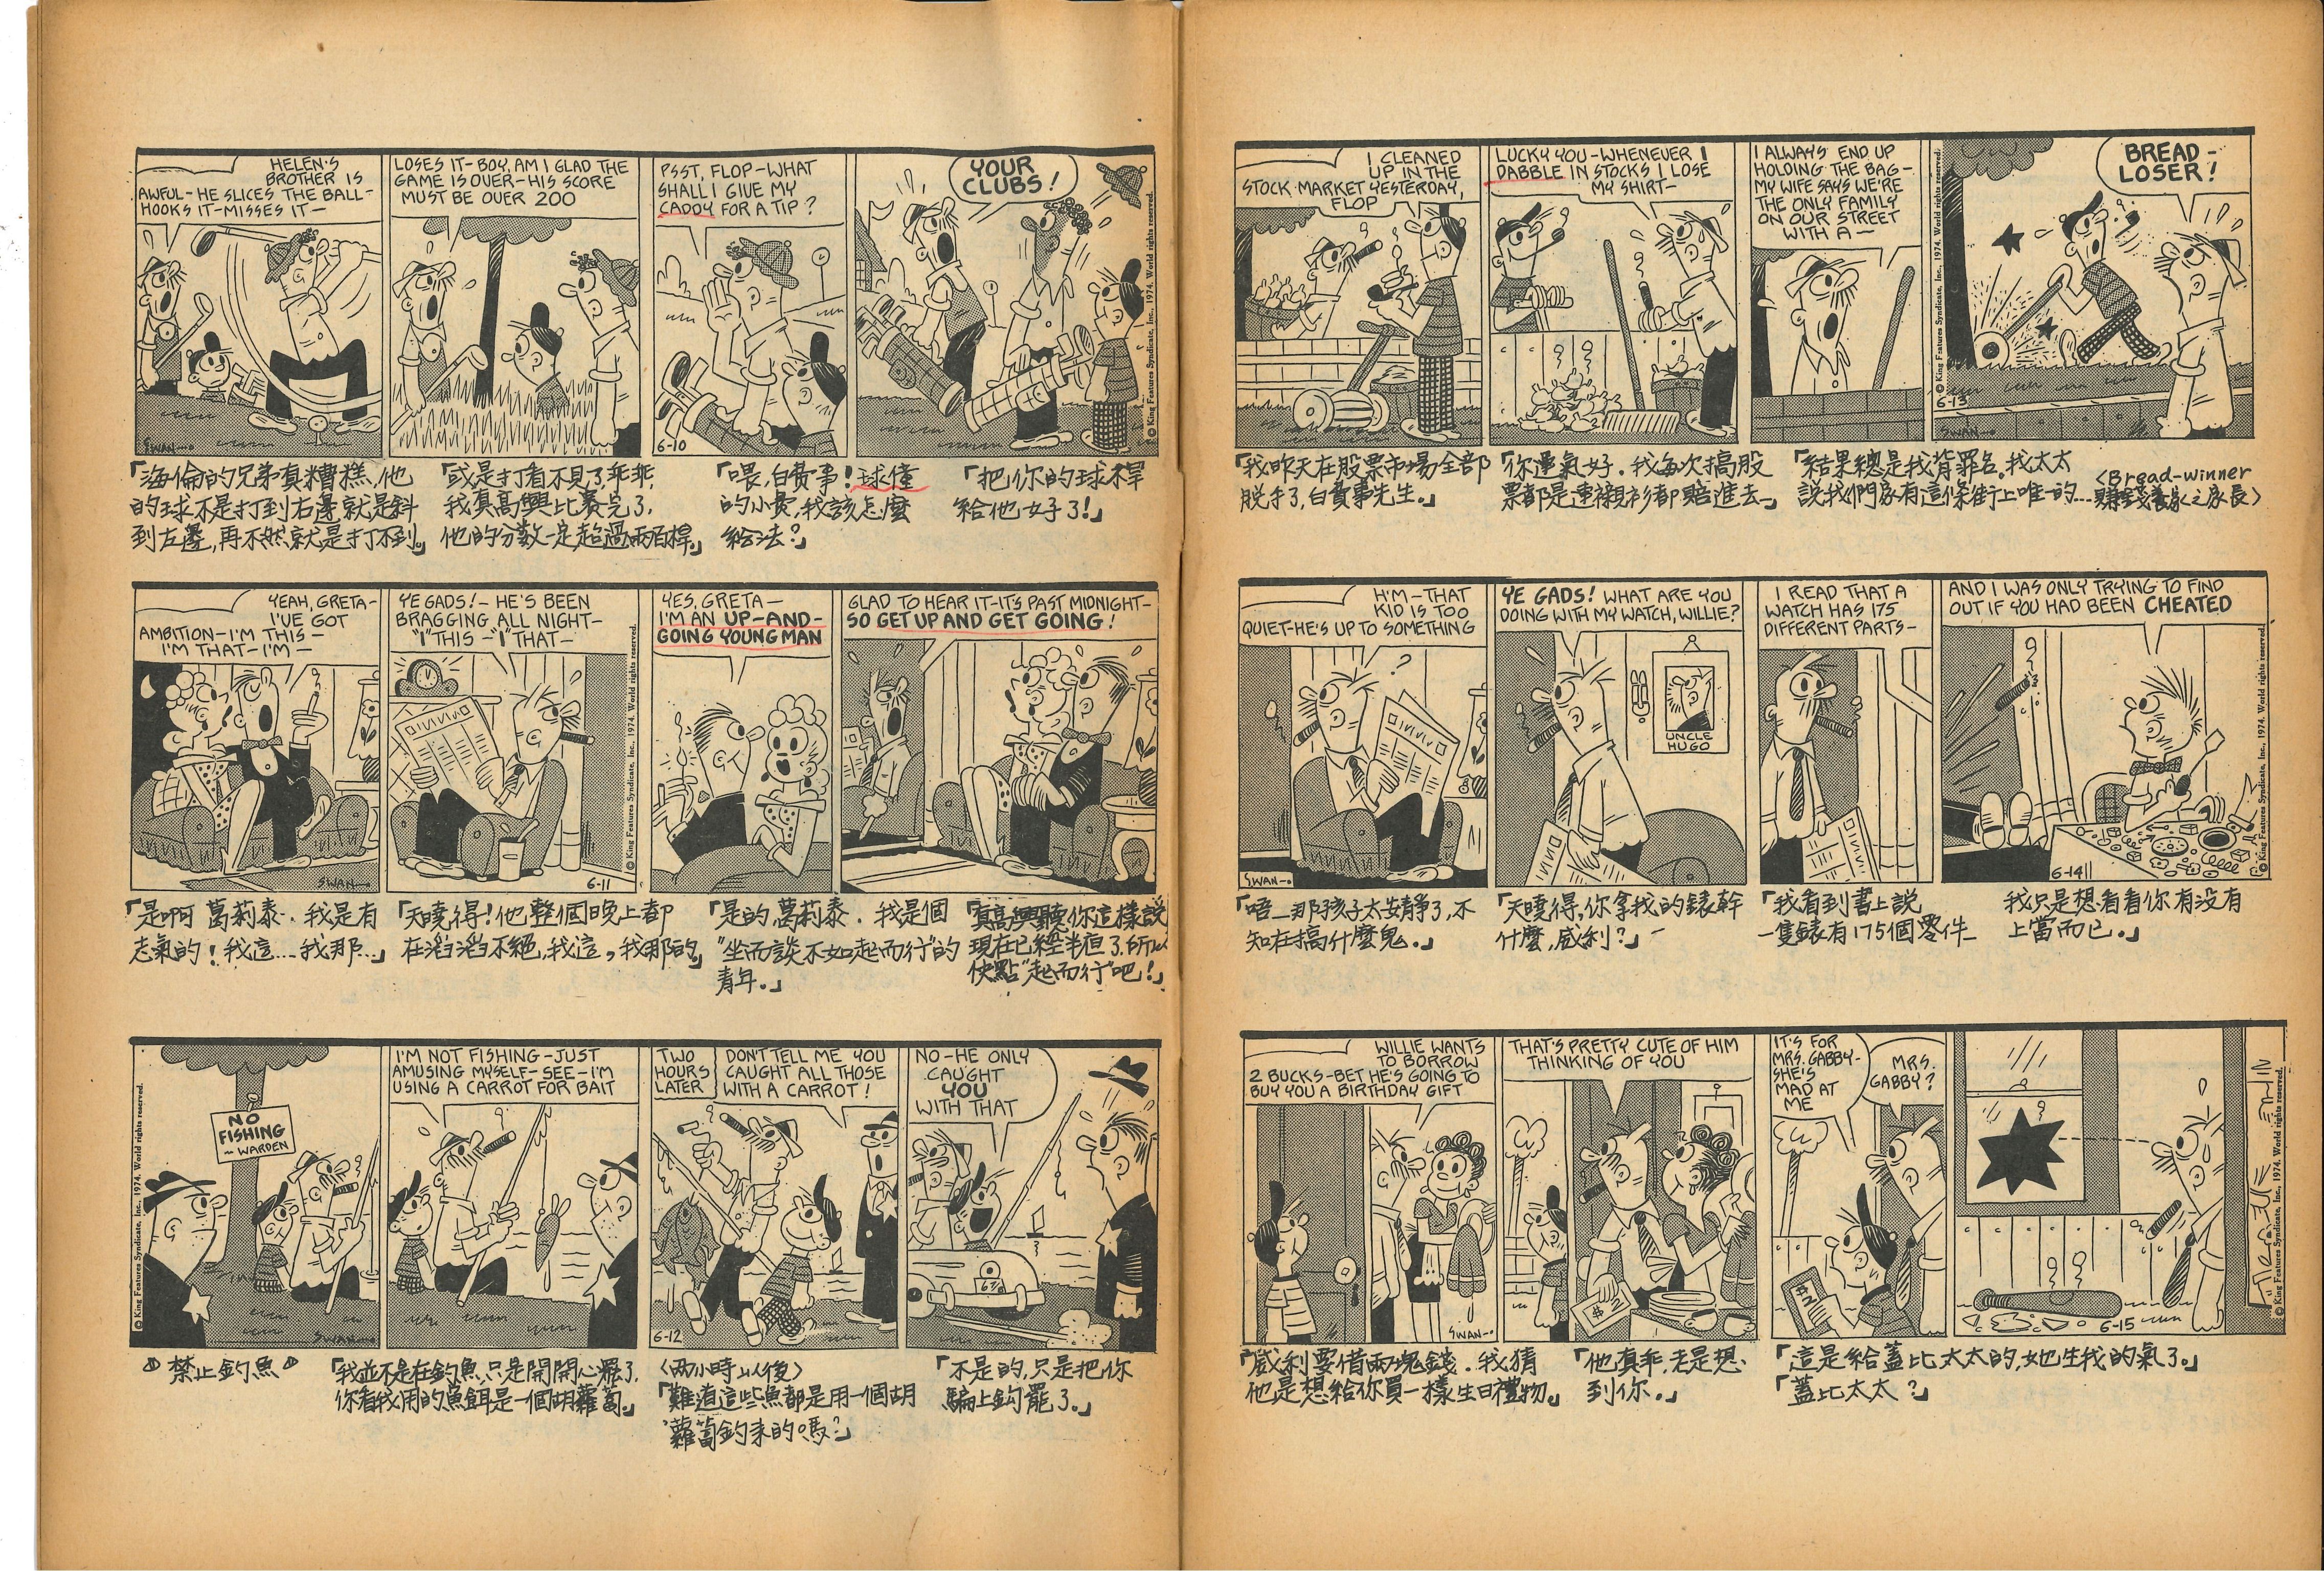 HELEN'S
BROTHER IS
AWFUL-HE SLICES THE BALL-
HOOKS IT-MISSES IT-
LOSES IT-BOY, AM I GLAD THE
GAME IS OVER-HIS SCORE
MUST BE OVER 200
PSST, FLOP-WHAT
SHALL I GIVE MY
CADDY FOR A TIP?
YOUR
CLUBS!
SWAN
6-10
© King Features Syndicate, Inc., 1974. World rights reserved.
「海倫的兄弟真糟糕,他
的球不是打到右邊就是斜
到左邊,再不然就是打不到。」
「或是打着不見了,乖乖,
我真高興比賽完了,
他的分數一定超過兩百桿。」
「喂,白費事!球僮
的小費,我該怎麼
給法?」
「把你的球桿
給他好了!」
YEAH, GRETA-
I'VE GOT
AMBITION-I'M THIS-
I'M THAT-I'M-
YE GADS!-HE'S BEEN
BRAGGING ALL NIGHT-
"I" THIS-"I" THAT-
YES, GRETA-
I'M AN UP-AND-
GOING YOUNG MAN
GLAD TO HEAR IT-IT'S PAST MIDNIGHT-
SO GET UP AND GET GOING!
SWAN
6-11
© King Features Syndicate, Inc., 1974. World rights reserved.
「是啊 葛莉泰.我是有
志氣的!我這...我那...」
「天曉得!他整個晚上都
在滔滔不絕,我這,我那的」
「是的,葛莉泰.我是個
"坐而談不如起而行"的
青年。」
「真高興聽你這樣說
現在已經半夜了,所以
快點"起而行"吧!」
NO
FISHING
-WARDEN
I'M NOT FISHING-JUST
AMUSING MYSELF-SEE-I'M
USING A CARROT FOR BAIT
TWO
HOURS
LATER
DON'T TELL ME YOU
CAUGHT ALL THOSE
WITH A CARROT!
NO-HE ONLY
CAUGHT
YOU
WITH THAT
SWAN
6-12
© King Features Syndicate, Inc., 1974. World rights reserved.
禁止釣魚
「我並不是在釣魚,只是開開心罷了,
你看我用的魚餌是一個胡蘿蔔。」
〈兩小時以後〉
「難道這些魚都是用一個胡
蘿蔔釣來的嗎?」
「不是的,只是把你
騙上鈎罷了。」
I CLEANED
UP IN THE
STOCK MARKET YESTERDAY,
FLOP
LUCKY YOU-WHENEVER I
DABBLE IN STOCKS I LOSE
MY SHIRT-
I ALWAYS END UP
HOLDING THE BAG-
MY WIFE SAYS WE'RE
THE ONLY FAMILY
ON OUR STREET
WITH A-
BREAD-
LOSER!
SWAN
6-13
© King Features Syndicate, Inc., 1974. World rights reserved.
「我昨天在股票市場全部
脫手了,白費事先生。」
「你運氣好.我每次搞股
票都是連襯衫都賠進去-」
「結果總是我背罪名.我太太
說我們家有這條街上唯一的...
〈Bread-winner
賺錢養家之家長〉
H'M-THAT
KID IS TOO
QUIET-HE'S UP TO SOMETHING
YE GADS! WHAT ARE YOU
DOING WITH MY WATCH, WILLIE?
UNCLE
HUGO
I READ THAT A
WATCH HAS 175
DIFFERENT PARTS-
AND I WAS ONLY TRYING TO FIND
OUT IF YOU HAD BEEN CHEATED
SWAN
6-14
© King Features Syndicate, Inc., 1974. World rights reserved.
「唔-那孩子太安靜了,不
知在搞什麼鬼。」
「天曉得,你拿我的錶幹
什麼,威利?」
「我看到書上說
一隻錶有175個零件-
我只是想看看你有没有
上當而已。」
WILLIE WANTS
TO BORROW
2 BUCKS-BET HE'S GOING TO
BUY YOU A BIRTHDAY GIFT
THAT'S PRETTY CUTE OF HIM
THINKING OF YOU
IT'S FOR
MRS. GABBY-
SHE'S
MAD AT
ME
MRS.
GABBY?
SWAN
6-15
© King Features Syndicate, Inc., 1974. World rights reserved.
「威利要借兩塊錢.我猜
他是想給你買一樣生日禮物。」
「他真乖.老是想
到你。」
「這是給蓋比太太的,她生我的氣了。」
「蓋比太太?」